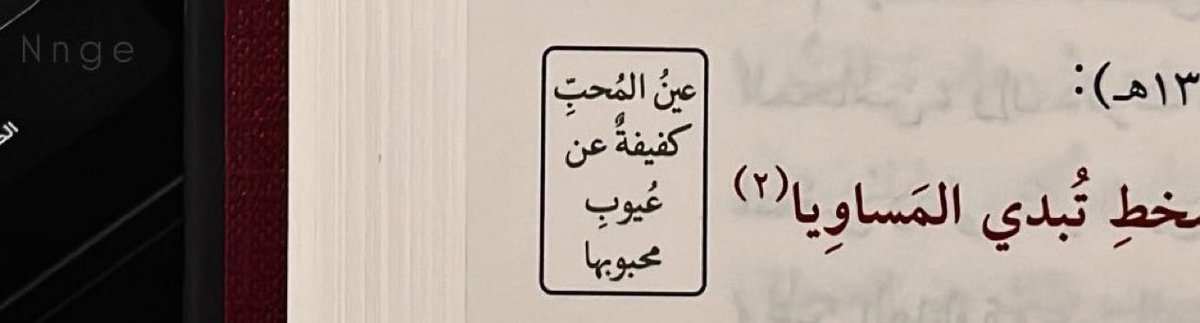 Nnge
١٣هـ):
عينُ المُحبِّ
كفيفةٌ عن
عُيوبِ
محبوبها
تُبدي المَساوِيا(٢)